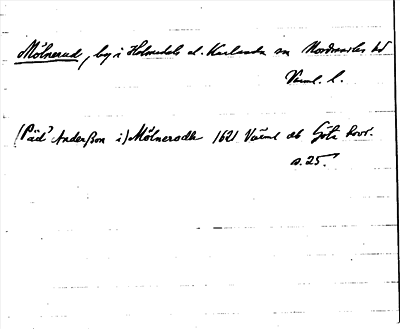 Mölnerud, by i Holmedals el. Karlanda sn Nordmarks hd
Värml. l.
(Päd? Anderßon i) Mölnerodh 1621 Värml ÄB Göta hovr.
s. 25.